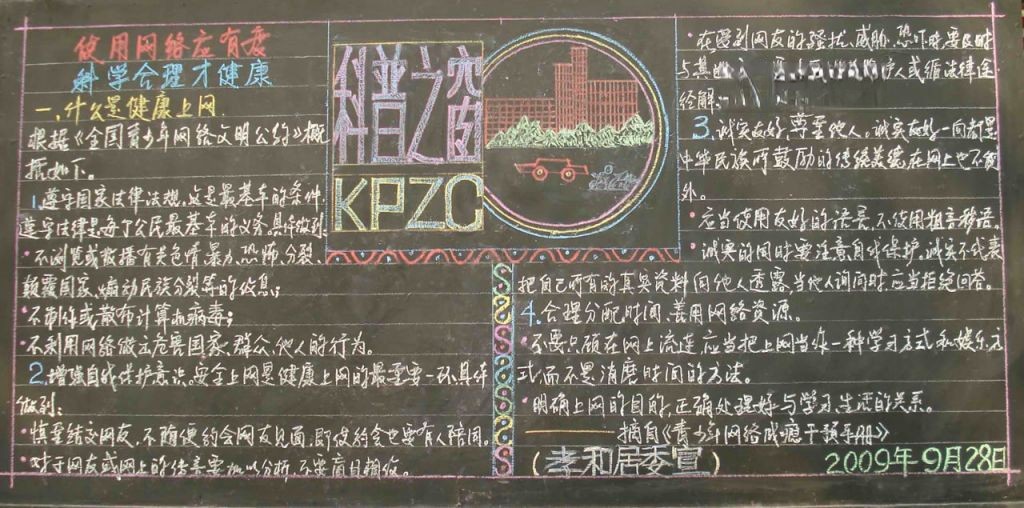 使用网络应有度
科学合理才健康
一、什么是健康上网
根据《全国青少年网络文明公约》概
括如下。
1.遵守国家法律法规，这是最基本的条件，
遵守法律是每个公民最基本的义务，具体做到：
·不浏览或散播有关色情、暴力、恐怖、分裂、
颠覆国家、煽动民族分裂等的信息；
·不制作或散布计算机病毒；
·不利用网络做出危害国家、群众、他人的行为。
2.增强自我保护意识。安全上网是健康上网的最重要一环，具体
做到：
·慎重结交网友，不随便约会网友见面，即使约会也要有人陪同。
·对于网友或网上的传言要加以分析，不要盲目相信。
科普之窗
KPZC
·在受到网友的骚扰、威胁、恐吓时要及时
与其 护人或循法律途
径解
3.诚实友好，尊重他人。诚实友好一向都是
中华民族所鼓励的传统美德，在网上也不例
外。
·应当使用友好的语言，不使用粗言秽语。
·诚实的同时要注意自我保护，诚实不代表
把自己所有的真实资料向他人透露，当他人询问时，应当拒绝回答。
4.合理分配时间，善用网络资源。
·不要只顾在网上流连，应当把上网当作一种学习方式和娱乐方
式，而不是消磨时间的方法。
·明确上网的目的，正确处理好与学习、生活的关系。
——摘自《青少年网络成瘾干预手册》
(孝和居委宣)
2009年9月28日